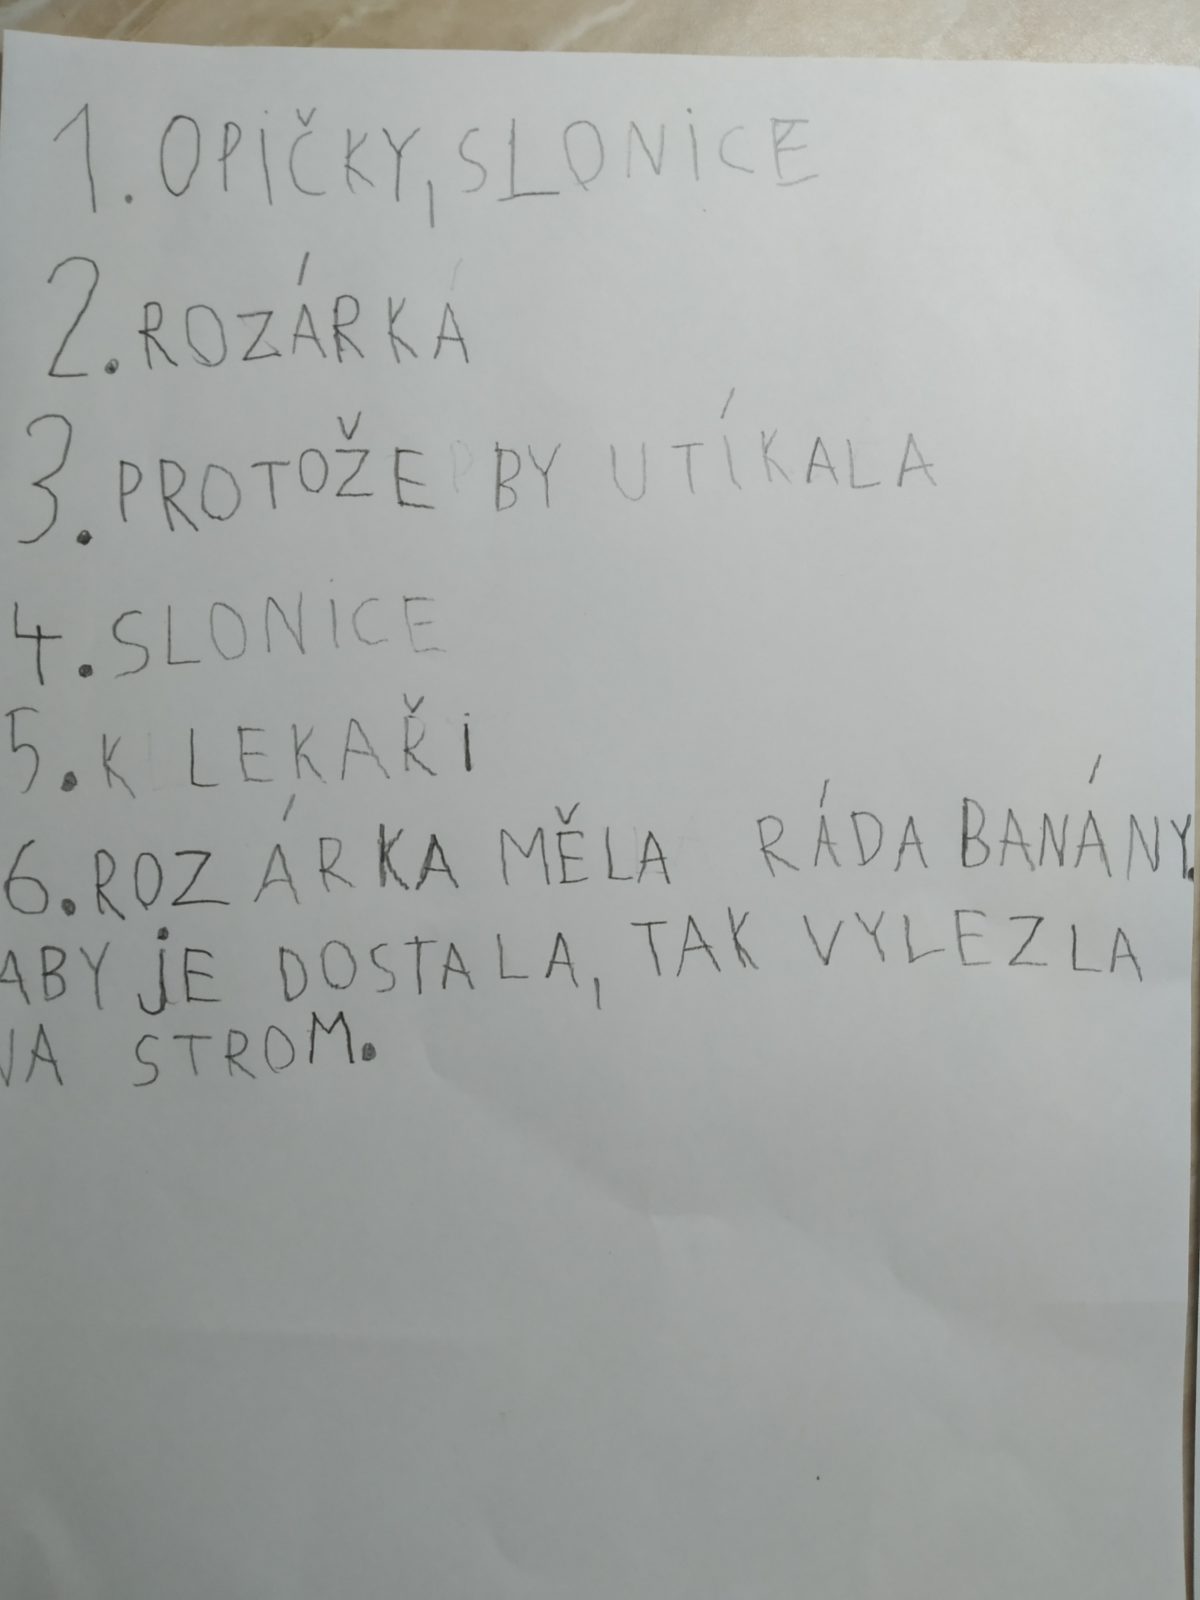 1. OPIČKY, SLONICE
2. ROZÁRKA
3. PROTOŽE BY UTÍKALA
4. SLONICE
5. K LEKAŘI
6. ROZÁRKA MĚLA RÁDA BANÁNY.
ABY jE DOSTALA, TAK VYLEZLA
NA STROM.